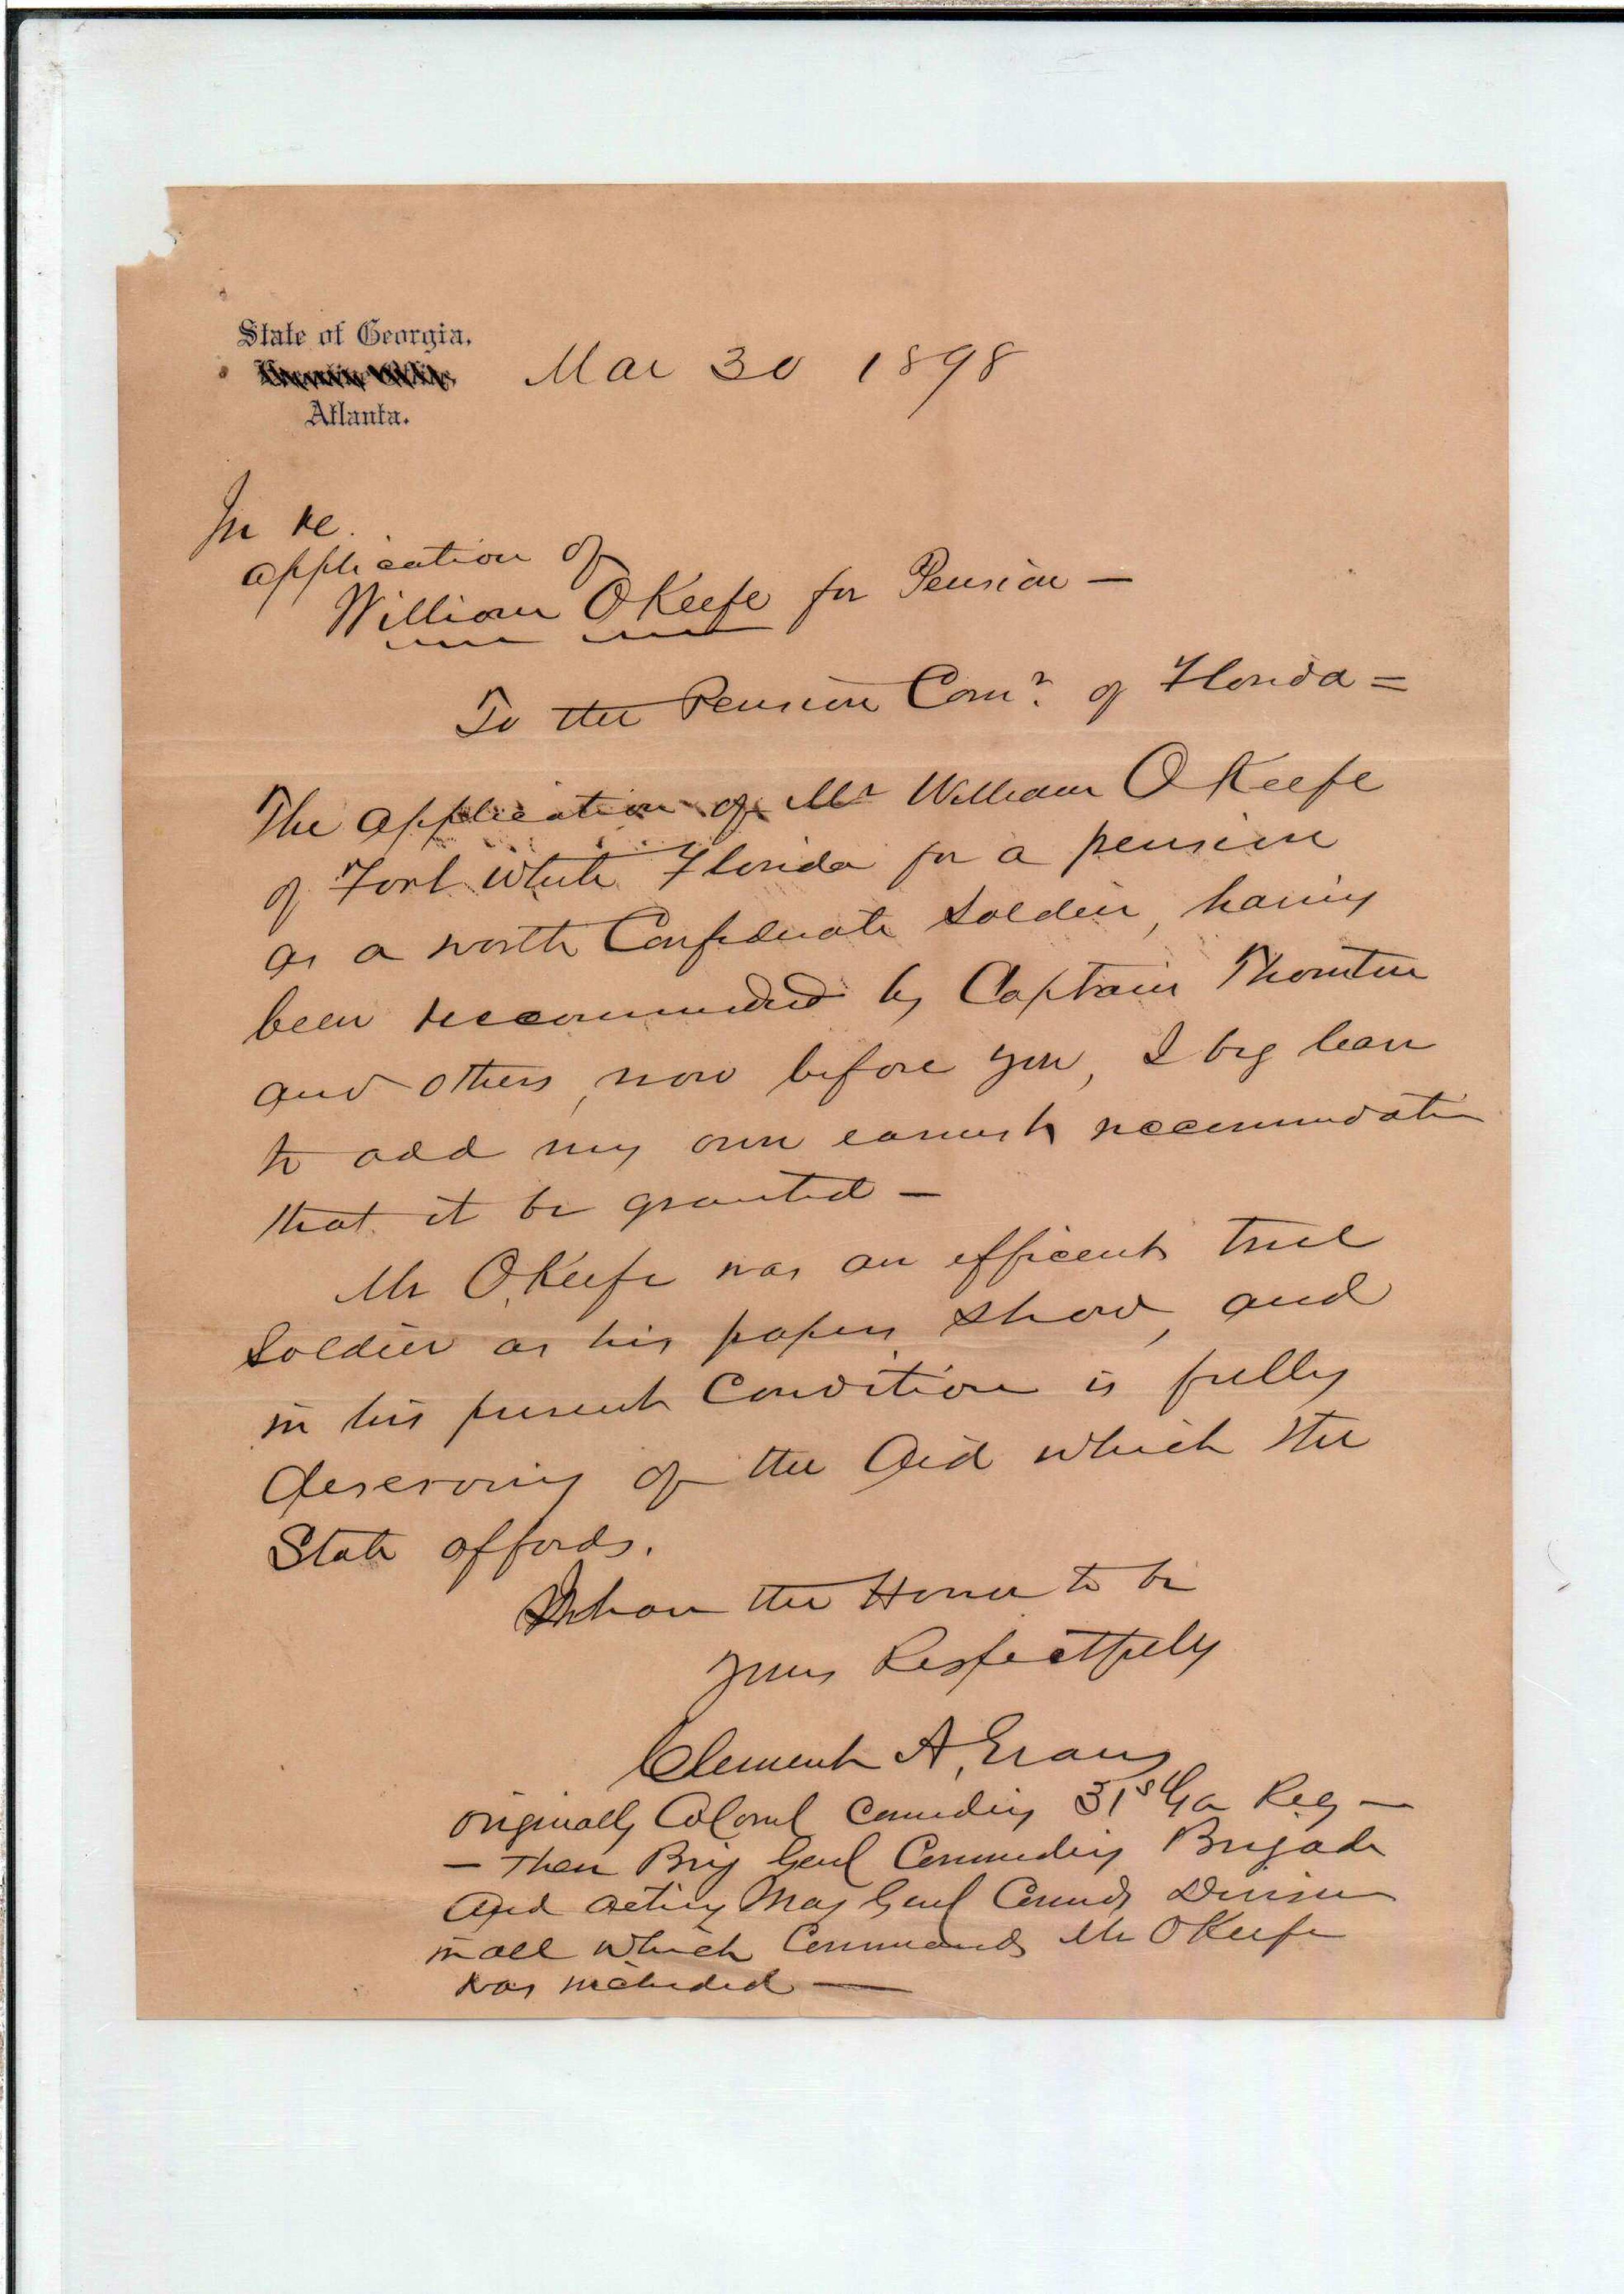 State of Georgia.
Atlanta.
Mar 30 1898
In re.
application of
William OKeefe for Pension —
To the Pension Comr. of Florida =
The application of Mr William OKeefe
of Fort White Florida for a pension
as a worth Confederate soldier, having
been recommended by Captain Thornton
and others, now before you, I beg leave
to add my own earnest recommendation
that it be granted —
Mr OKeefe was an efficent true
soldier as his papers show, and
in his present condition is fully
deserving of the Aid which the
State affords.
I have the Honor to be
yours Respectfully
Clement A. Evans
originally Colonel Comnding 31st Ga Reg —
— Then Brig Genl Commnding Brigade
And acting Maj Genl Comndg Division
in all which Commands Mr OKeefe
was included —